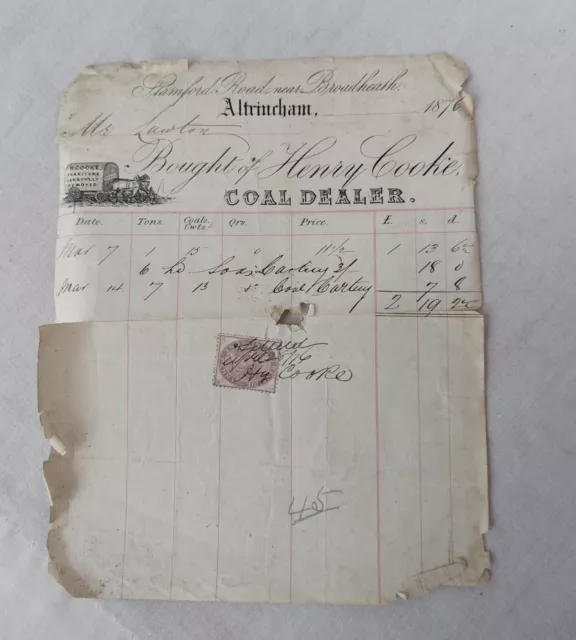 Stamford Road, near Broadheath.
Altrincham, 1876
Mr Lawton
Bought of Henry Cooke,
H. COOKE,
FURNITURE
CAREFULLY
REMOVED.
COAL DEALER.
Date. Tons. Coals. Cwts. Qrs. Price. £. s. d.
Mar 7 1 15 " 11½ 1 13 6
6 Ld Carting 3/ 18 0
Mar 7 13 Coal Carting 7 8
2 19 2
Settled
Hy Cooke
405